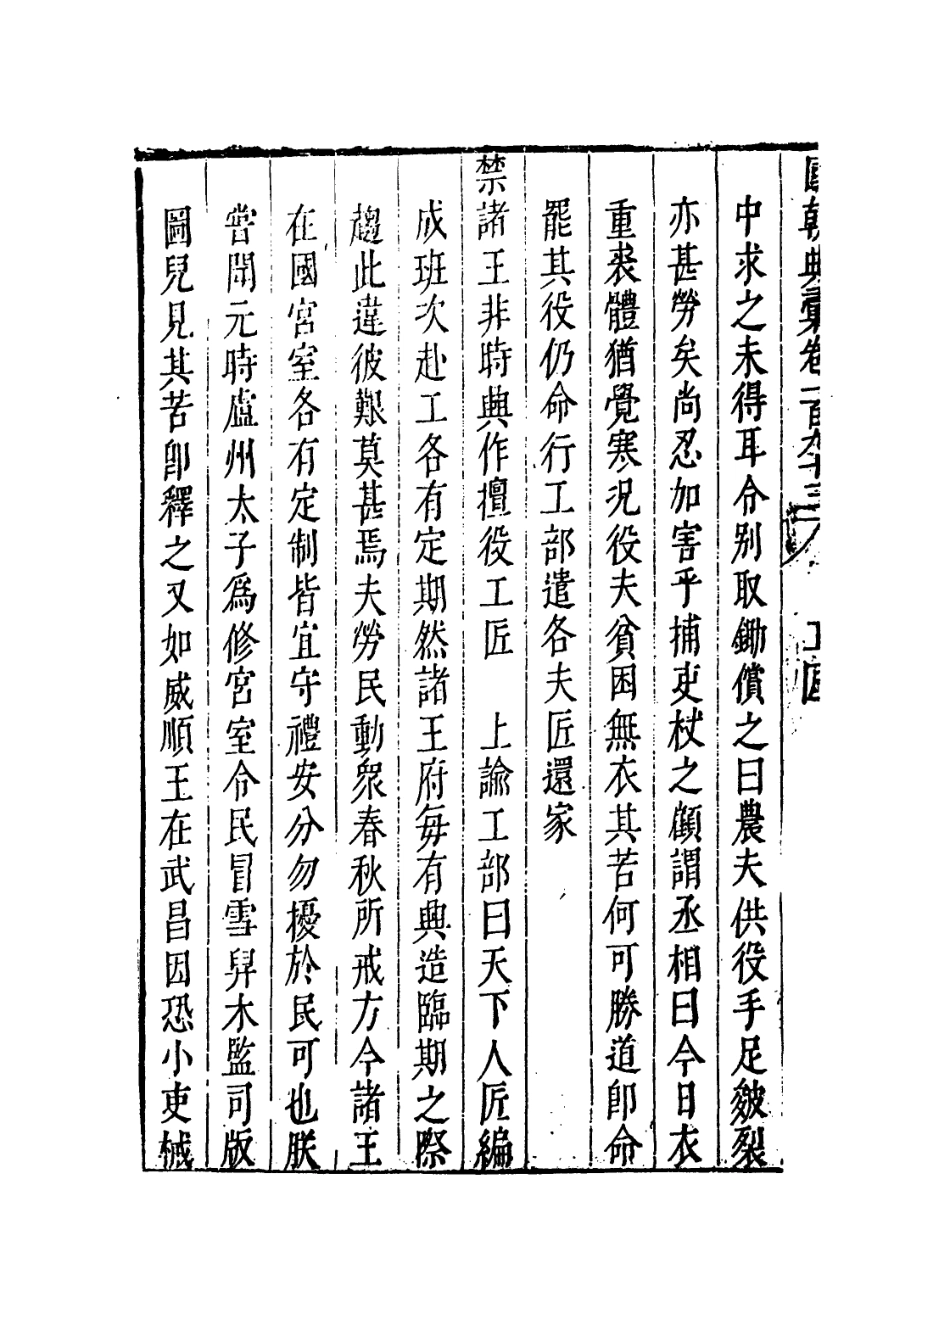 國朝典彙卷一百九十三 工匠
中求之未得耳令別取鋤償之曰農夫供役手足皴裂
亦甚勞矣尚忍加害乎捕吏杖之顧謂丞相曰今日衣
重裘體猶覺寒况役夫貧困無衣其苦何可勝道即命
罷其役仍命行工部遣各夫匠還家
禁諸王非時興作擅役工匠 上諭工部曰天下人匠編
成班次赴工各有定期然諸王府每有興造臨期之際
趨此違彼艱莫甚焉夫勞民動眾春秋所戒方今諸王
在國宮室各有定制皆宜守禮安分勿擾於民可也朕
嘗聞元時盧州太子爲修宮室令民冒雪舁木監司版
圖兒見其苦即釋之又如威順王在武昌因恐小吏械